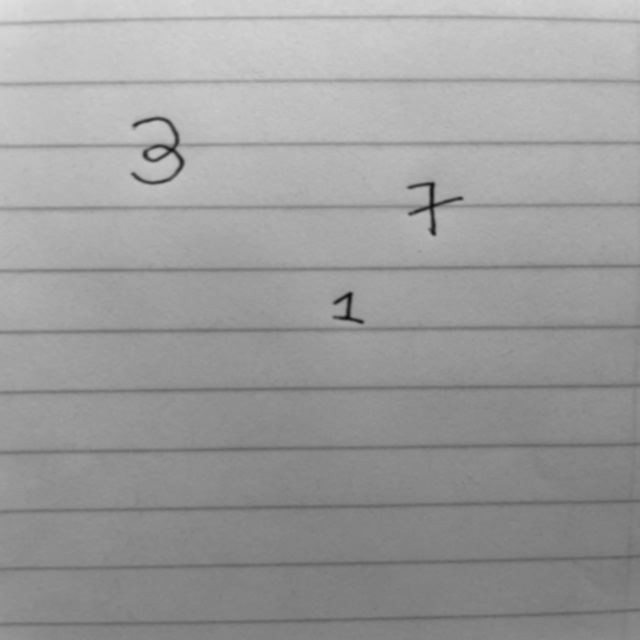 3
7
1